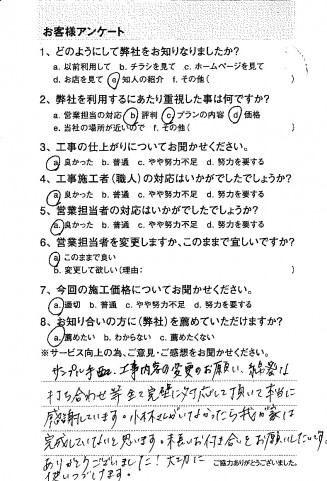 お客様アンケート
1、どのようにして弊社をお知りなりましたか?
a. 以前利用して b. チラシを見て c. ホームページを見て
d. お店を見て e. 知人の紹介 f. その他( )
2、弊社を利用するにあたり重視した事は何ですか?
a. 営業担当の対応 b. 評判 c. プランの内容 d. 価格
e. 当社の場所が近いので f. その他( )
3、工事の仕上がりについてお聞かせください。
a. 良かった b. 普通 c. やや努力不足 d. 努力を要する
4、工事施工者(職人)の対応はいかがでしたでしょうか?
a. 良かった b. 普通 c. やや努力不足 d. 努力を要する
5、営業担当者の対応はいかがでしたでしょうか?
a. 良かった b. 普通 c. やや努力不足 d. 努力を要する
6、営業担当者を変更しますか、このままで宜しいですか?
a. このままで良い
b. 変更して欲しい(理由: )
7、今回の施工価格についてお聞かせください。
a. 適切 b. 普通 c. やや努力不足 d. 努力を要する
8、お知り合いの方に(弊社)を薦めていただけますか?
a. 薦めたい b. わからない c. 薦めたくない
※サービス向上の為、ご意見・ご感想をお聞かせください。
サンプル手配、工事内容の変更のお願い、
打ち合わせ等全て完璧に対応して頂いて本当に
感謝しています。小林さんがいなかったら我が家は
完成していないと思います。末長いお付き合いをお願いしたいです。
ありがとうございました!大切に
使いつづけます。
ご協力ありがとうございました。